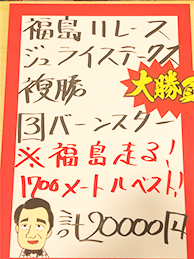 福島11レース
ジュライステークス
複勝
大勝
3バーンスター
※福島走る!
1700メートルベスト!!
計20000円